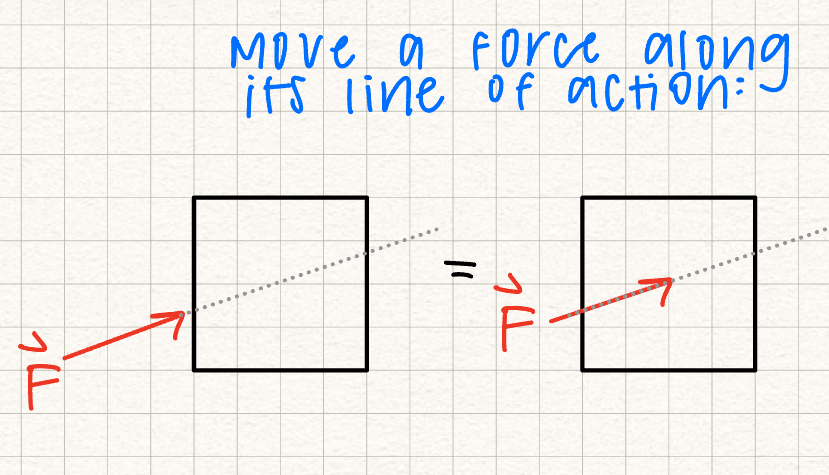 Move a force along
its line of action:
=
F⃗
F⃗